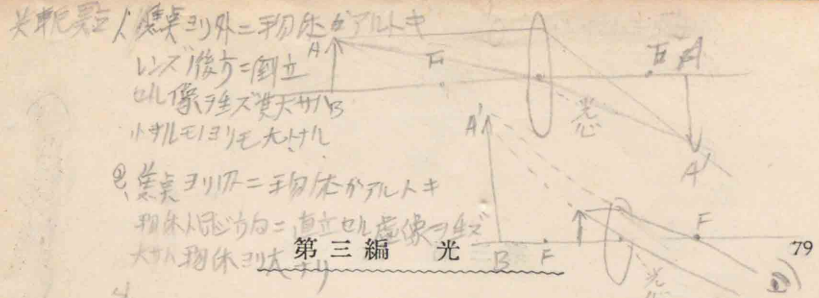 1 焦点ヨリ外ニ物体ガアルトキ
レンズノ後方ニ倒立
セル像ヲ生ズ其大サハ
小サルモノヨリモ大トナル
2. 焦点ヨリ外ニ物体ガアルトキ
物体ト同ジ方向ニ直立セル虚像ヲ生ズ
大サハ物体ヨリ大ナリ
A
B
F
光心
F
A'
A'
B
F
光心
F
第三編 光
79